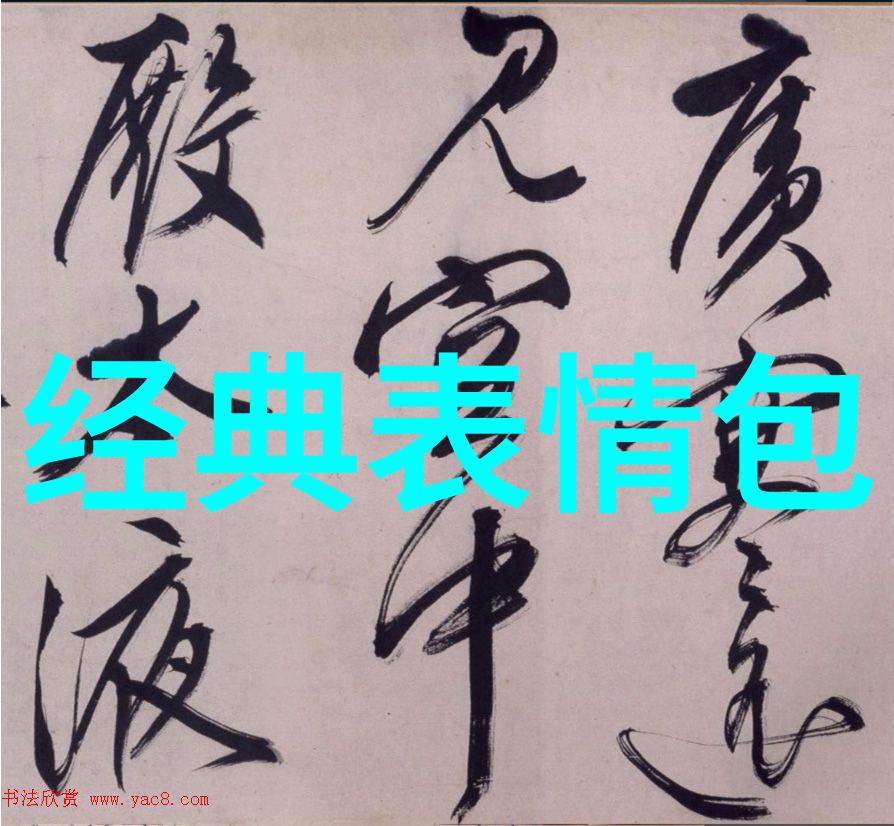 廣寒
見宮中
殿太液
经典表情包
书法欣赏 www.yac8.com